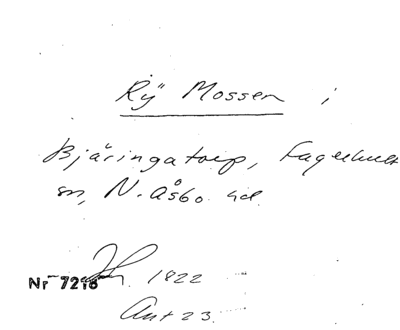 Rÿ Mossen i
Bjäringatorp, Fagerhult
sn, N. Åsbo hd.
Nr 7218 1822
Ant 23.